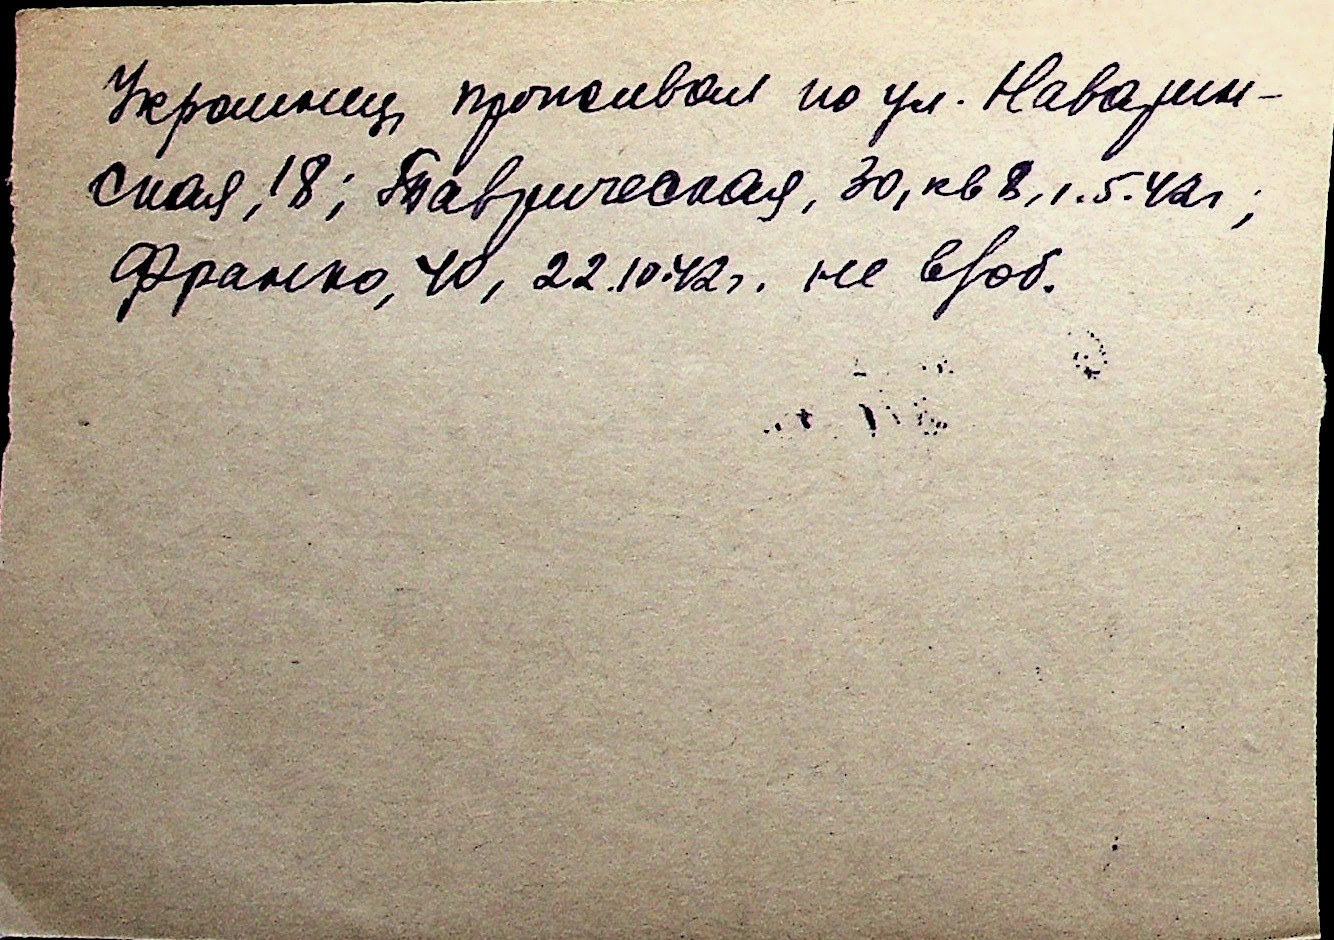 Украинец, проживал по ул. Наварин-
ская, 18; Таврическая, 30, кв 8, 1.5.42г;
Франко, 40, 22.10.42г. не